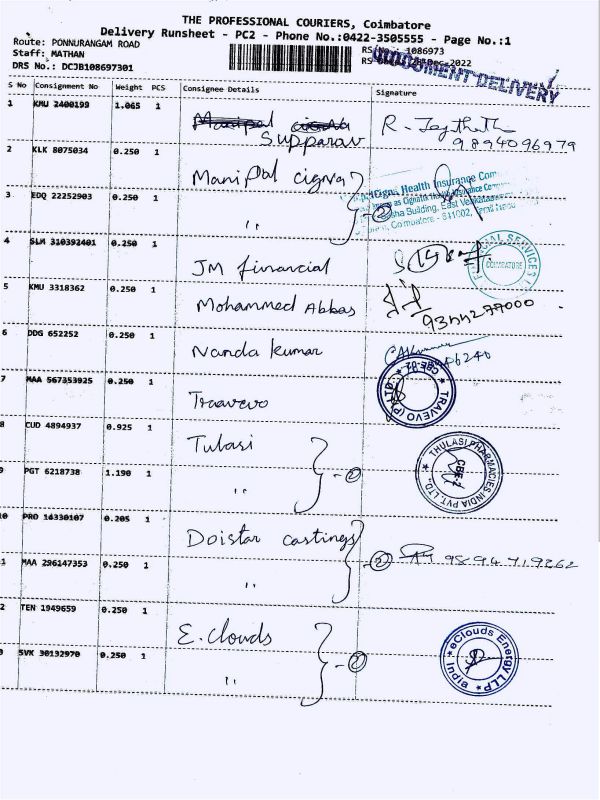 THE PROFESSIONAL COURIERS, Coimbatore
Delivery Runsheet - PC2 - Phone No.:0422-3505555 - Page No.:1
Route: PONNURANGAM ROAD
Staff: MATHAN
DRS No.: DCJB108697301
1086973
2022
DOCUMENT DELIVERY
S No Consignment No Weight PCS Consignee Details Signature
1 KMU 2400199 1.065 1 Manipal cigna
Supparav
9894096979
2 KLK 8075034 0.250 1 Manipal cigna
Cigna Health Insurance
Building, East
Coimbatore - 641002
3 EDQ 22252903 0.250 1 "
2
4 SLM 310392401 0.250 1 JM financial
COIMBATORE
5 KMU 3318362 0.250 1 Mohammed Abbas
6 DDG 652252 0.250 1 Nanda kumar
7 MAA 567353925 0.250 1 Travevo
TRAVEVO (P) LTD CBE-02
8 CUD 4894937 0.925 1 Tulasi
THULASI PHARMACIES INDIA PVT. LTD.,
CBE-2
9 PGT 6218738 1.190 1 "
2
0 PRO 14330107 0.205 1 Doistar castings
1 MAA 296147353 0.250 1 "
2
2 TEN 1949659 0.250 1 E.clouds
eClouds Energy LLP
India
SVK 30132970 0.250 1 "
2